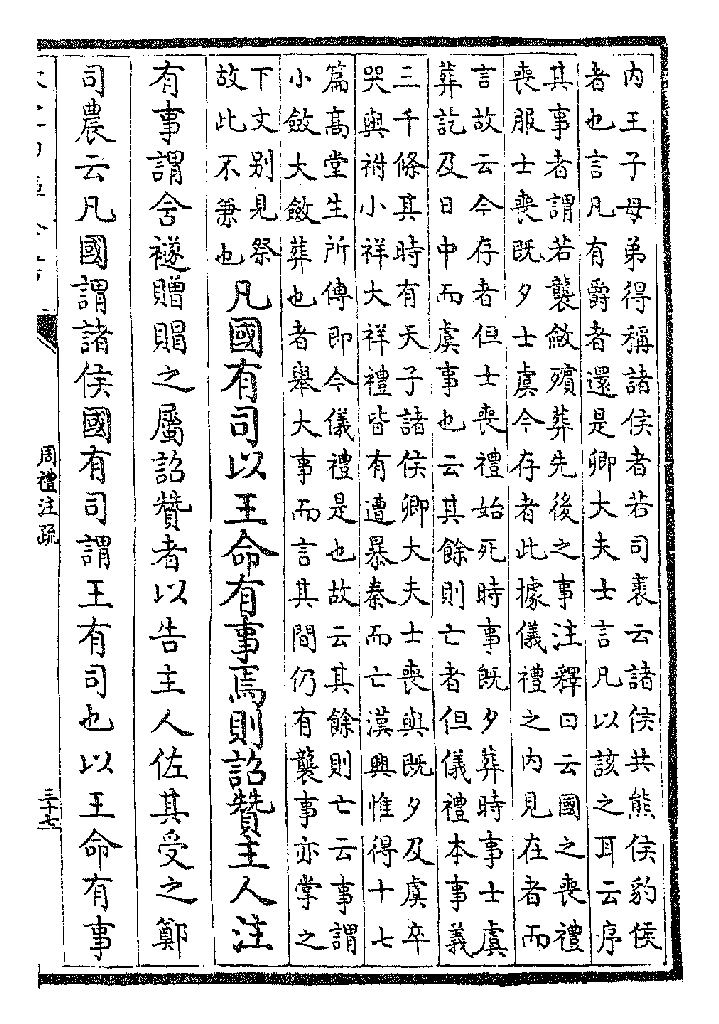 内王子母弟得稱諸侯者若司裘云諸侯共熊侯豹侯
者也言凡有爵者還是卿大夫士言凡以該之耳云序
其事者謂若襲斂殯葬先後之事注釋曰云國之喪禮
喪服士喪既夕士虞今存者此據儀禮之内見在者而
言故云今存者但士喪禮始死時事既夕葬時事士虞
葬訖及日中而虞事也云其餘則亡者但儀禮本事義
三千條其時有天子諸侯卿大夫士喪與既夕及虞卒
哭與祔小祥大祥禮皆有遭暴秦而亡漢興惟得十七
篇高堂生所傳即今儀禮是也故云其餘則亡云事謂
小斂大斂葬也者舉大事而言其間仍有襲事亦掌之
下文别見祭
故此不兼也
凡國有司以王命有事焉則詔贊主人注
有事謂含襚贈賵之屬詔贊者以告主人佐其受之鄭
司農云凡國謂諸侯國有司謂王有司也以王命有事
周禮注疏
三十七